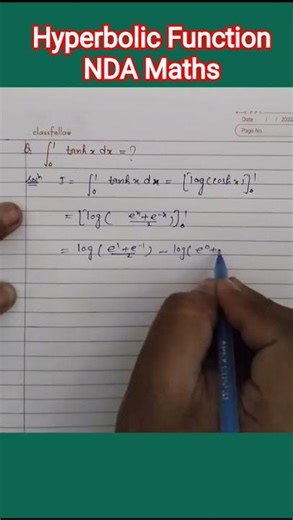 Hyperbolic Function
NDA Maths
classfellow
Date / / 202
Page No.
Q. ∫₀¹ tanhx dx = ?
Solⁿ I = ∫₀¹ tanhx dx = [log(coshx)]₀¹
= [log( (eˣ+e⁻ˣ)/2 )]₀¹
= log( (e¹+e⁻¹)/2 ) − log( e⁰+